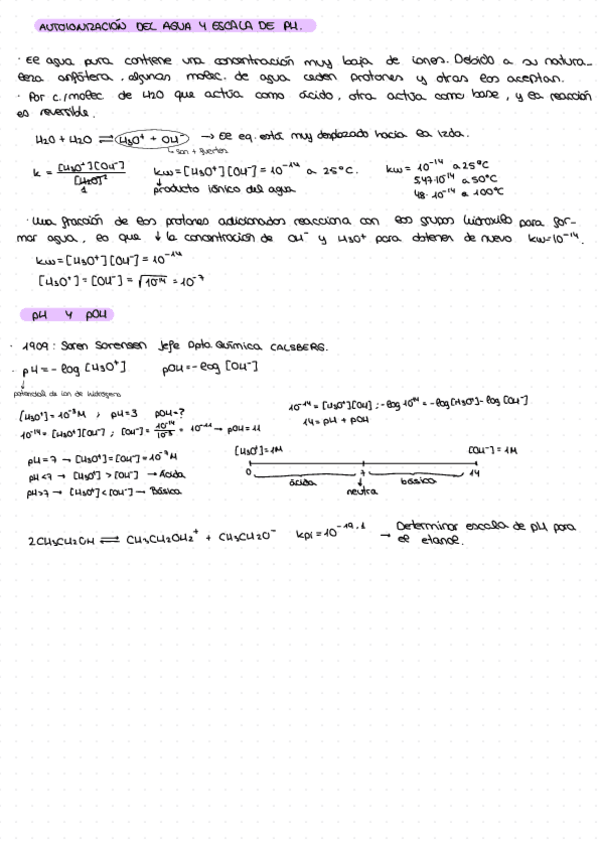 AUTOIONIZACIÓN DEL AGUA Y ESCALA DE PH.
· El agua pura contiene una concentración muy baja de iones. Debido a su natura-
leza anfótera, algunas molec. de agua ceden protones y otras los aceptan.
· Por c/molec de H2O que actúa como ácido, otra actúa como base, y la reacción
es reversible.
H2O + H2O ⇌ H3O⁺ + OH⁻ → El eq. está muy desplazado hacia la izda.
↳ son + fuertes
k = [H3O⁺][OH⁻] / [H2O]² kw = [H3O⁺][OH⁻] = 10⁻¹⁴ a 25°C. kw = 10⁻¹⁴ a 25°C
1 ↓ producto iónico del agua 5'47·10⁻¹⁴ a 50°C
48·10⁻¹⁴ a 100°C
· Una fracción de los protones adicionados reacciona con los grupos hidroxilo para for-
mar agua, lo que ↓ la concentración de OH⁻ y H3O⁺ para obtener de nuevo kw=10⁻¹⁴.
kw = [H3O⁺][OH⁻] = 10⁻¹⁴
[H3O⁺] = [OH⁻] = √10⁻¹⁴ = 10⁻⁷
pH Y pOH
· 1909: Soren Sorensen Jefe Dpto. Química CALSBERG.
· pH = - log [H3O⁺] pOH = - log [OH⁻]
↓
potencial de ion de hidrógeno
[H3O⁺] = 10⁻³M ; pH = 3 pOH = ? 10⁻¹⁴ = [H3O⁺][OH] ; -log 10¹⁴ = -log[H3O⁺] - log [OH⁻]
10⁻¹⁴ = [H3O⁺][OH⁻] ; [OH⁻] = 10⁻¹⁴/10⁻³ = 10⁻¹¹ → pOH = 11 14 = pH + pOH
pH = 7 → [H3O⁺] = [OH⁻] = 10⁻⁷M [H3O⁺] = 1M [OH⁻] = 1M
pH < 7 → [H3O⁺] > [OH⁻] → Ácida 0 ácida 7 básica 14
pH > 7 → [H3O⁺] < [OH⁻] → Básica neutra
2CH3CH2OH ⇌ CH3CH2OH2⁺ + CH3CH2O⁻ kpi = 10⁻¹⁹·¹ → Determinar escala de pH para
el etanol.